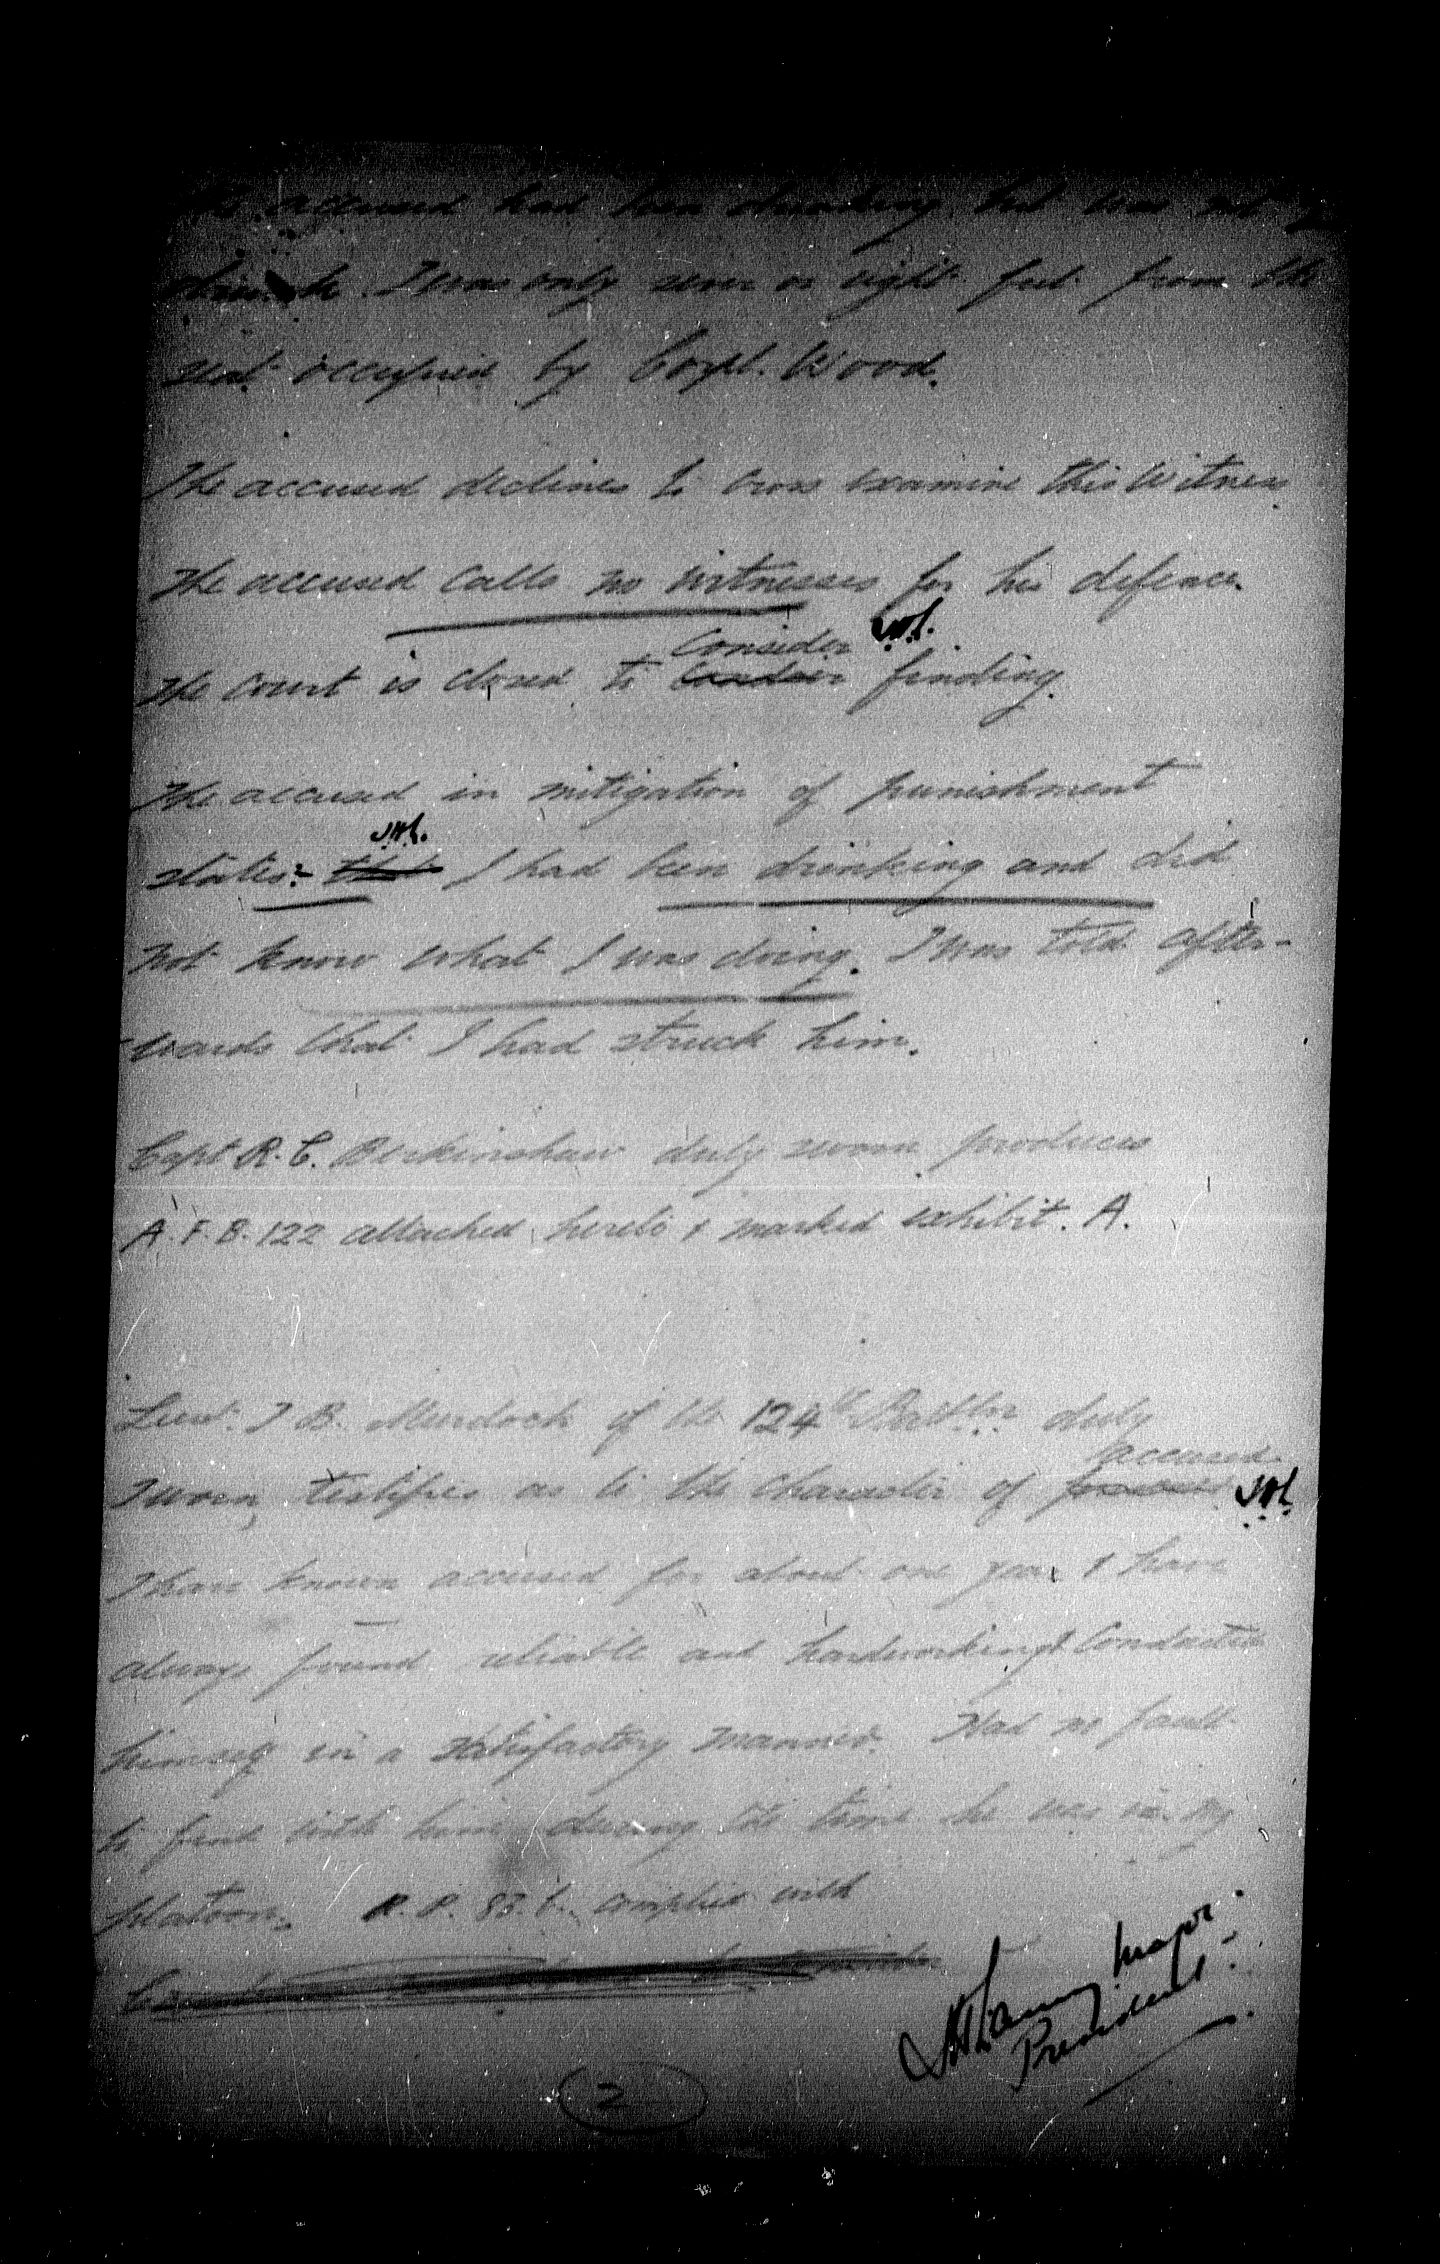 The accused had been drinking but was not
drunk. I was only seven or eight feet from the
seat occupied by Corpl. Wood.
The accused declines to cross examine this Witness
The accused calls no witnesses for his defence.
Consider
The Court is closed to finding.
The accused in mitigation of punishment
states:- that I had been drinking and did
not know what I was doing. I was told after-
wards that I had struck him.
Capt R. C. Birkinshaw duly sworn produces
A.F.B. 122 attached hereto & marked exhibit. A.
Lieut. J B. Murdock of the 124th Battn. duly
accused
sworn, testifies as to the Character of
I have known accused for about one year & have
always found reliable and hardworking & Conducted
himself in a satisfactory manner. Had no fault
to find with him during the time he was in my
Platoon. R.P. 83.C. complied with
Major
President
2